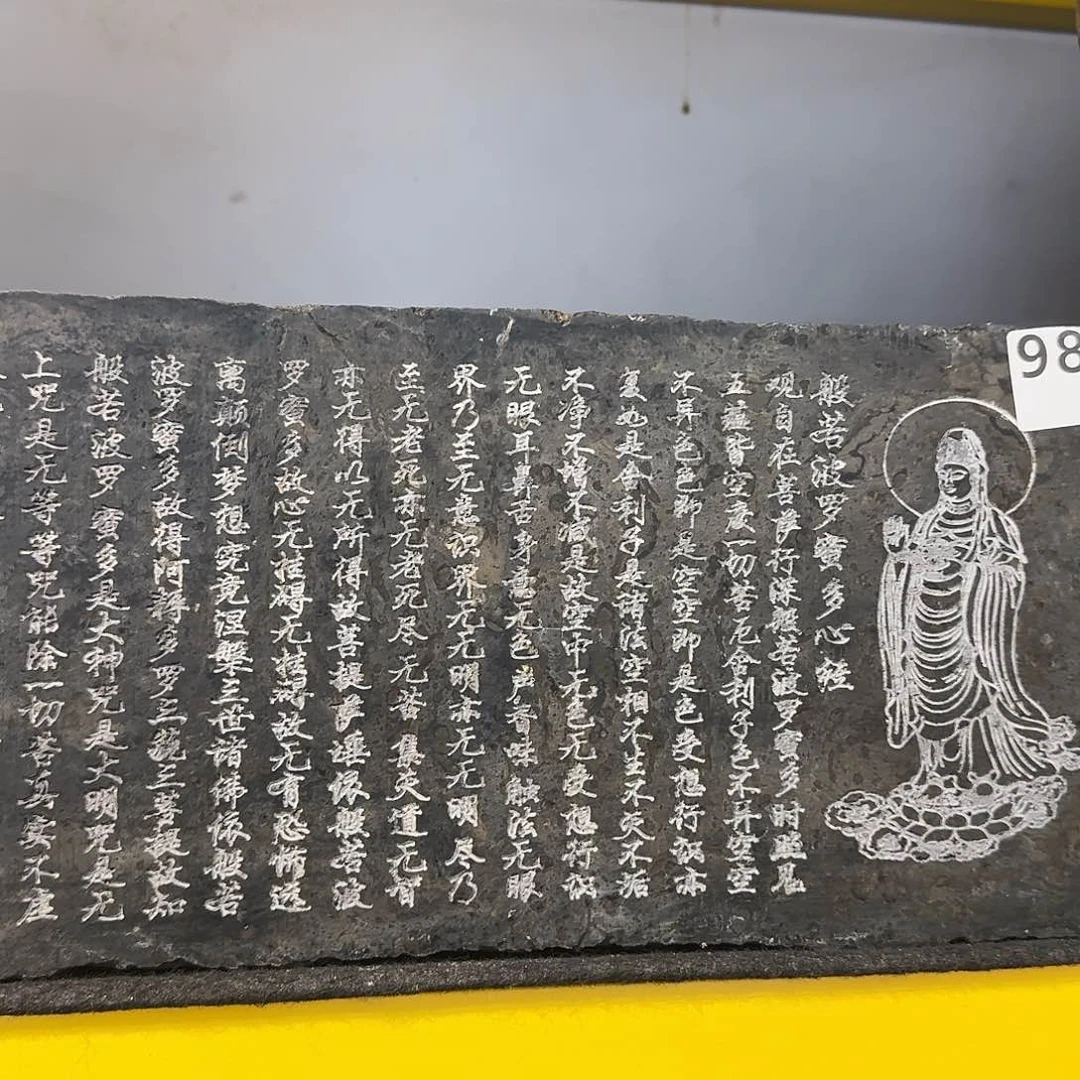 98
般若波罗蜜多心经
观自在菩萨行深般若波罗蜜多时照见
五蕴皆空度一切苦厄舍利子色不异空空
不异色色即是空空即是色受想行识亦
复如是舍利子是诸法空相不生不灭不垢
不净不增不减是故空中无色无受想行识
无眼耳鼻舌身意无色声香味触法无眼
界乃至无意识界无无明亦无无明尽乃
至无老死亦无老死尽无苦集灭道无智
亦无得以无所得故菩提萨埵依般若波
罗蜜多故心无挂碍无挂碍故无有恐怖远
离颠倒梦想究竟涅槃三世诸佛依般若
波罗蜜多故得阿耨多罗三藐三菩提故知
般若波罗蜜多是大神咒是大明咒是无
上咒是无等等咒能除一切苦真实不虚